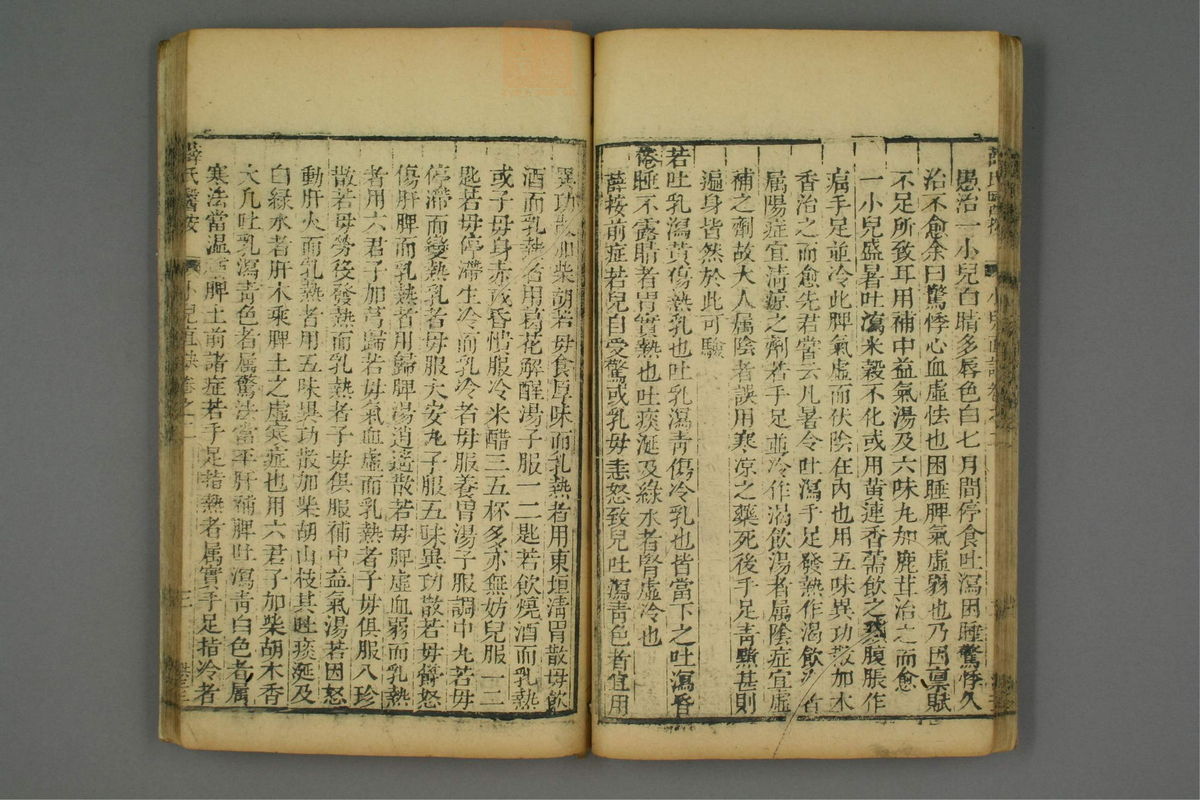 愚治一小兒白睛多唇色白七月間停食吐瀉困睡驚悸久
治不愈余曰驚悸心血虛怯也困睡脾氣虛弱也乃因稟賦
不足所致耳用補中益氣湯及六味丸加鹿茸治之而愈
一小兒盛暑吐瀉米穀不化或用黃連香薷飲之腹脹作
痛手足並冷此脾氣虛而伏陰在內也用五味異功散加木
香治之而愈先君嘗云凡暑令吐瀉手足發熱作渴飲者
属陽症宜清凉之劑若手足並冷作渴飲湯者属陰症宜
補之劑故大人属陰者誤用寒凉之藥死後手足青黑甚則
遍身皆然於此可驗
若吐乳瀉黃傷熱乳也吐乳瀉青傷冷乳也皆當下之吐瀉昏
倦睡不露睛者胃實熱也吐痰涎及綠水者胃虛冷也
薛按前症若兒自受驚或乳母恚怒致兒吐瀉青色者宜用
異功散加柴胡若母食厚味而乳熱者用東垣清胃散母飲
酒而乳熱者用葛花解酲湯子服一二匙若飲燒酒而乳熱
或子母身赤或昏憒服冷米醋三五杯多亦無妨兒服一二
匙若母停滯生冷而乳冷者母服養胃湯子服調中丸若母
停滯而變熱乳者母服大安丸子服五味異功散若母鬱怒
傷肝脾而乳熱者用歸脾湯逍遙散若母脾虛血弱而乳熱
者用六君子加芎歸若母氣血虛而乳熱者子母俱服八珍
散若母勞役發熱而乳熱者子母俱服補中益氣湯若因怒
動肝火而乳熱者用五味異功散加柴胡山枝其吐痰涎及
白綠水者肝木乘脾土之虛寒症也用六君子加柴胡木香
大凡吐乳瀉青色者属驚法當平肝補脾吐瀉青白色者属
寒法當温補脾土前諸症若手足指熱者属實手足指冷者
薛氏醫按 小兒直訣卷之二